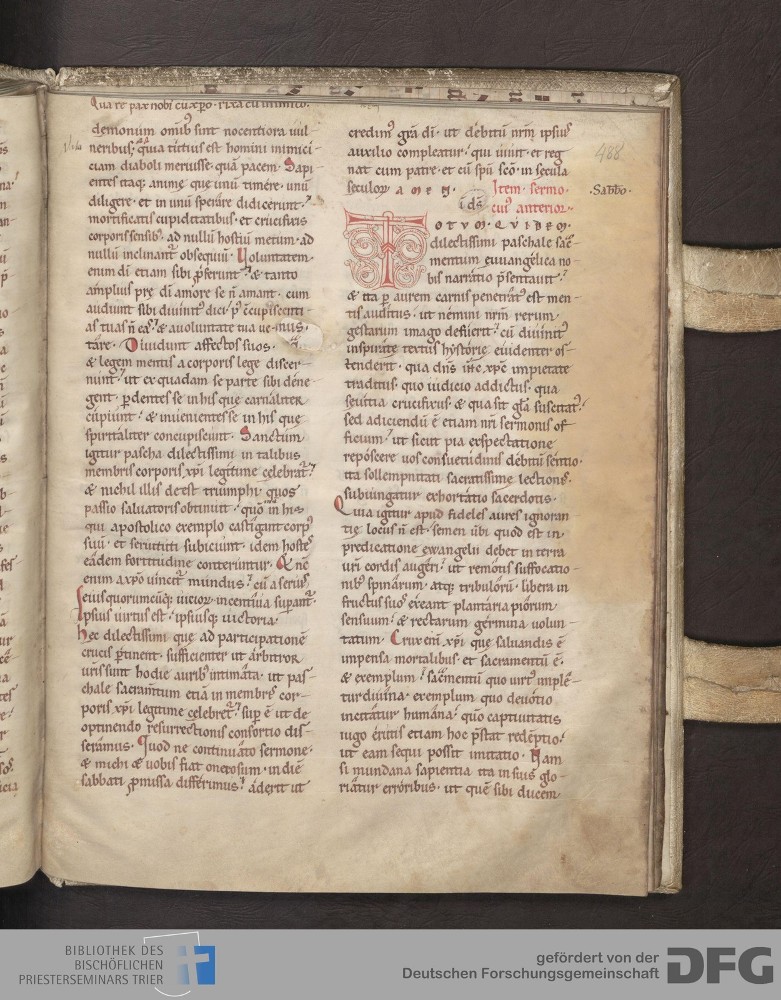 Qua re pax nobiscū xp̄o · rixa cū inimico·
demonium omib; sint nocentiora uul-
neribus; quia tutius est homini inimici-
ciam diaboli meruisse· quā pacem· Sapi-
entes itaq; anime que unū timere· unū
diligere· et in unū sperare didicerunt·
mortificatis cupiditatibus· et crucifixis
corporis sensib;· ad nullū hostiū metum· ad
nullū inclinant᷑ obsequiū· Uoluntatem
enim dī etiam sibi p̄ferunt· & tanto
amplius se p̄ dī amore se n̄ amant· cum
audiunt sibi diuinit᷑ dici· p᷒ c̄cupiscenti-
as tuas n̄ eas· & a uoluntate tua ue-
tare· Diuidunt affectos suos·
& legem mentis a corporis lege discer-
nunt· ut ex quadam se parte sibi dene-
gent· p̄dentes se in his que carnaliter
cupiunt· & inuenientes se in his que
spiritaliter concupiscunt· Sanctum
igitur pascha dilectissimi in talibus
membris corporis xp̄i legitime celebrat᷑·
& nichil illis deest triumphi quos
passio saluatoris obtinuit· quō in his
qui apostolico exemplo castigant corp᷒
suū· et seruituti subiciunt· idem hostes
eadem fortitudine conteruntur· & nc̄
enim a xp̄o uincit᷑ mundus· cū a seruis
eius quorumcūq; uicior incentiua supant᷑·
Ipsius uirtus est· ipsiusq; uictoria·
Hec dilectissimi que ad participationē
crucis p̄tinent· sufficienter ut arbitror
uris̄ sunt hodie aurib; intimata· ut pas-
chale sacramtum etiā in membris cor-
poris xp̄i legitime celebret᷑· sup ē ut de
optinendo resurrectionis consortio dis-
seramus· Quod ne continuato sermone·
& michi & uobis fiat onerosum· in diē
sabbati promissa differimus· aderit ut
credim᷒ grā dī· ut debitū nrm̄ ipsius
auxilio compleatur· qui uiuit et reg
nat cum patre· et cū spū sc̄o· in secula
seculoꝝ AMEN· Item sermo·
i ds̄ cui᷒ anterior·
TOTUM· QUIDEM·
dilectissimi paschale sac̄-
mentum euuangelica no-
bis narratio p̄sentauit·
& ita p aurem carnis penetrat᷒ est men-
tis auditus· ut nemini nr̄m rerum
gestarum imago defuerit· cū diuinit᷑
inspirate textus hystorie euidenter os-
tenderit· qua dn̄s ihc̄ xp̄c impietate
traditus· quo iudicio addictus· qua
seuitia crucifixus· & qua sit gl̄a suscitat᷒·
sed adiciendū ē etiam nr̄i sermonis of-
ficium· ut sicut pia exspectatione
reposcere uos consuetudinis debitū sentio·
ita sollempnitati sacratissime lectionis·
subiungatur exhortatio sacerdotis·
Quia igitur apud fideles aures ignoran
tię locus n̄ est· semen ūbi quod est in
predicatione ewangelii debet in terra
uri cordis augeri· ut remotis suffocatio-
nib; spinarum· atq; tribulorū· libera in
fructus suos exeant plantaria piorum
sensuum· & rectarum germina uolun-
tatum· Crux em̄ xp̄i que saluandis ē
impensa mortalibus· et sacramentū ē·
& exemplum· sac̄mentū quo uirt᷒ imple-
tur diuina· exemplum quo deuotio
incitatur humana· quō captiuitatis
iugo erutis etiam hoc p̄stat redēptio·
ut eam sequi possit imitatio· Nam
si mundana sapientia ita in suis glo-
riatur erroribus· ut quē sibi ducem
488
·Sabbo·
BIBLIOTHEK DES
BISCHÖFLICHEN
PRIESTERSEMINARS TRIER
gefördert von der
Deutschen Forschungsgemeinschaft
DFG